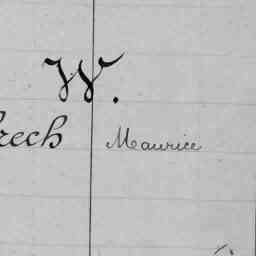 W.
rech Maurice